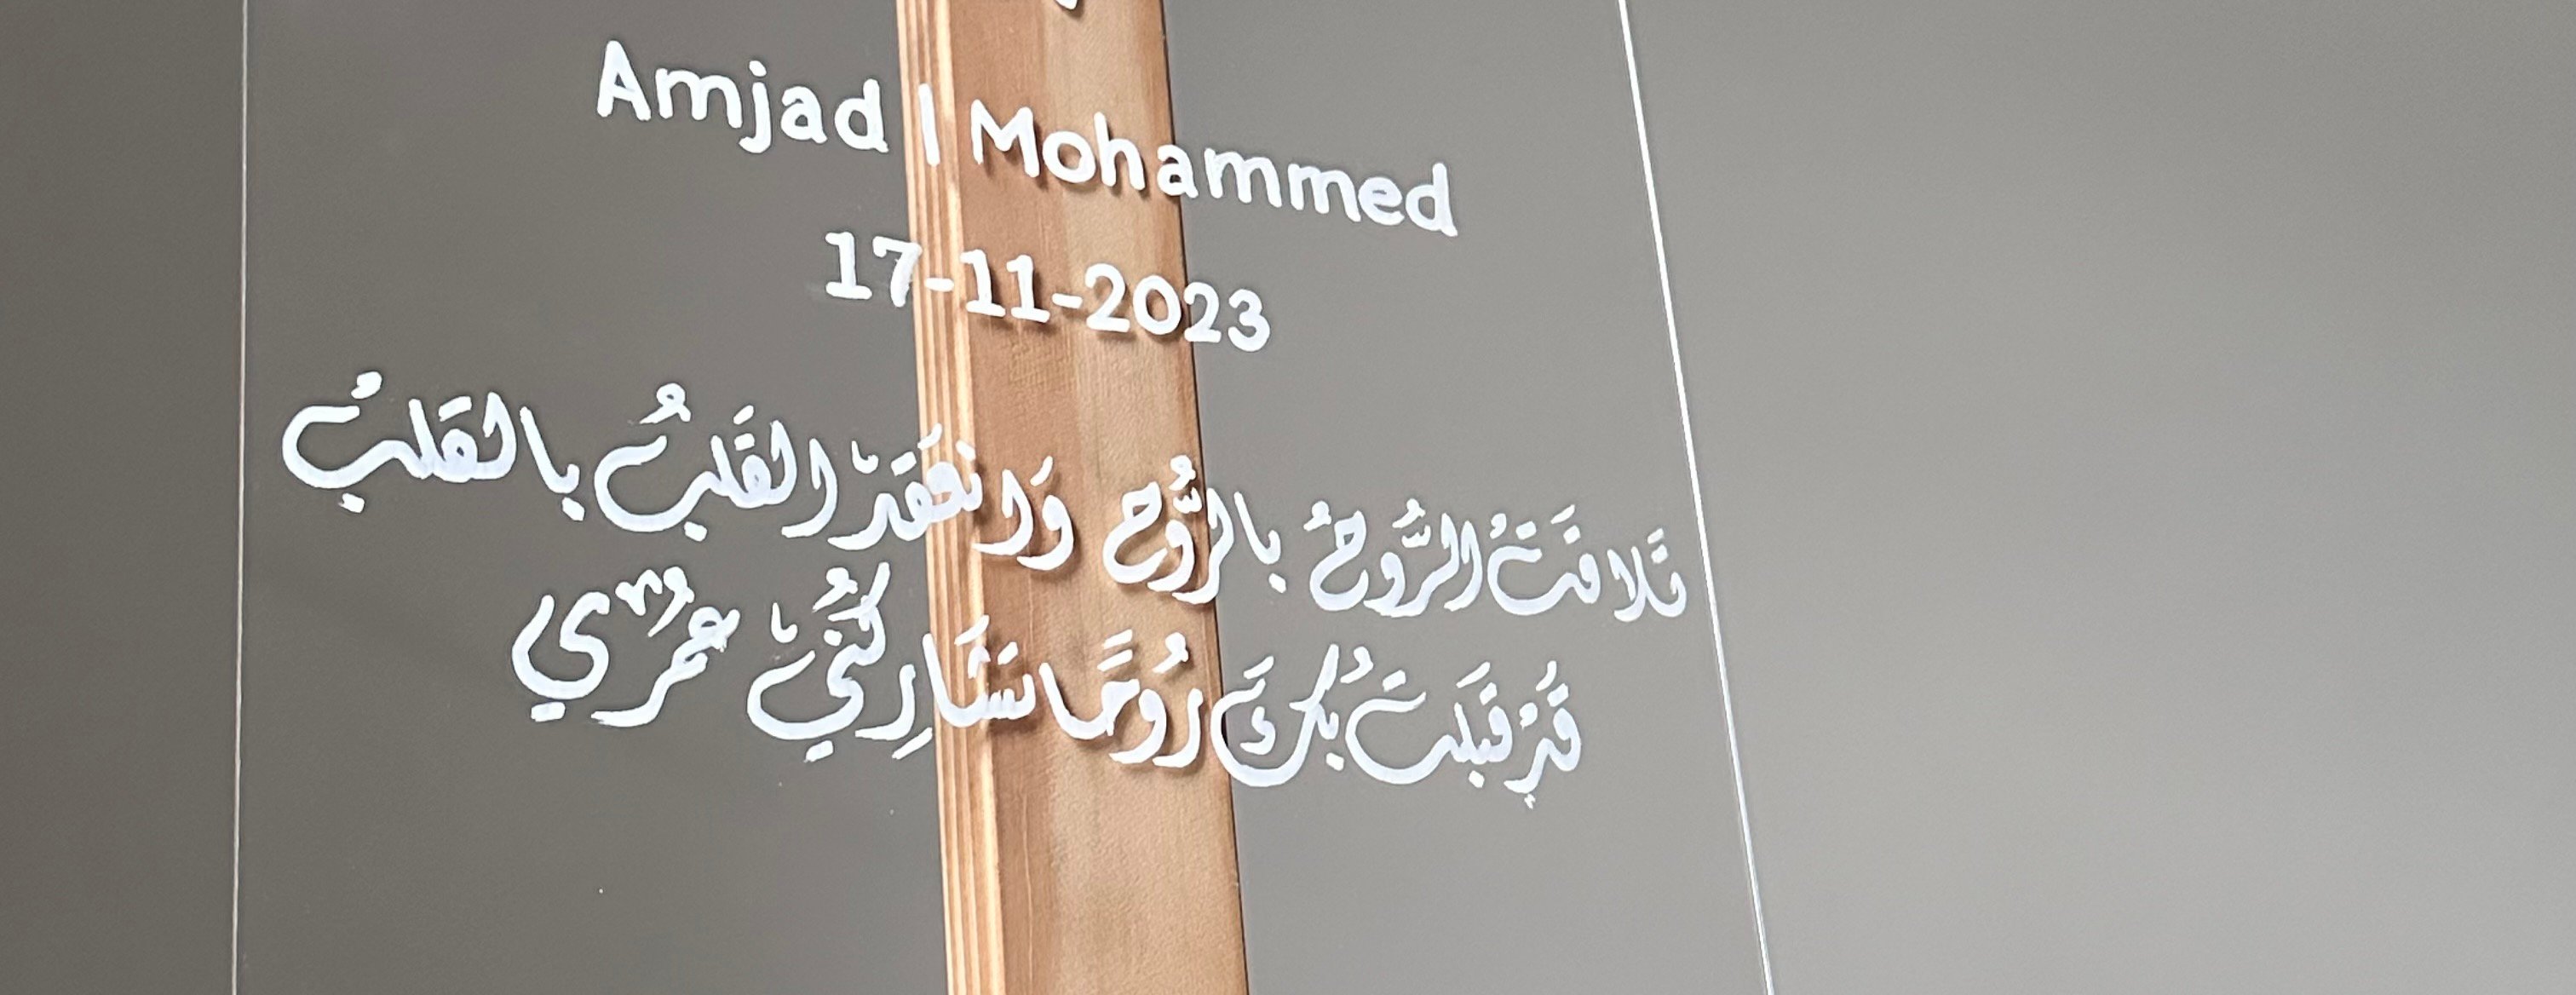 Amjad | Mohammed
17-11-2023
تَلافَتُ الرُّوحُ بالرُّوحِ وَانعَقَدَ القَلبُ بالقَلبُ
قَدْ قَبَلتُ بُكَ رُوحًا تَشَارِكُنِي عُمْرِي